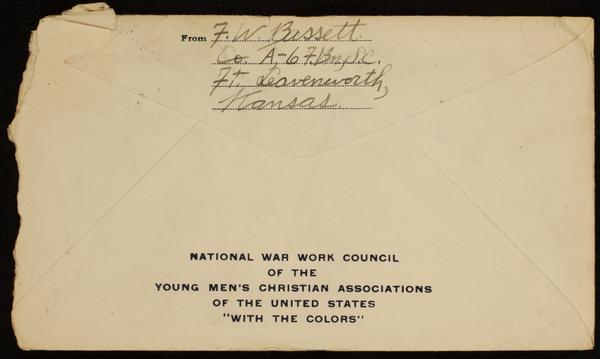 From F. W. Bassett
Co. A, 6 F. Bn. S.C.
Ft. Leavenworth,
Kansas
NATIONAL WAR WORK COUNCIL
OF THE
YOUNG MEN'S CHRISTIAN ASSOCIATIONS
OF THE UNITED STATES
"WITH THE COLORS"